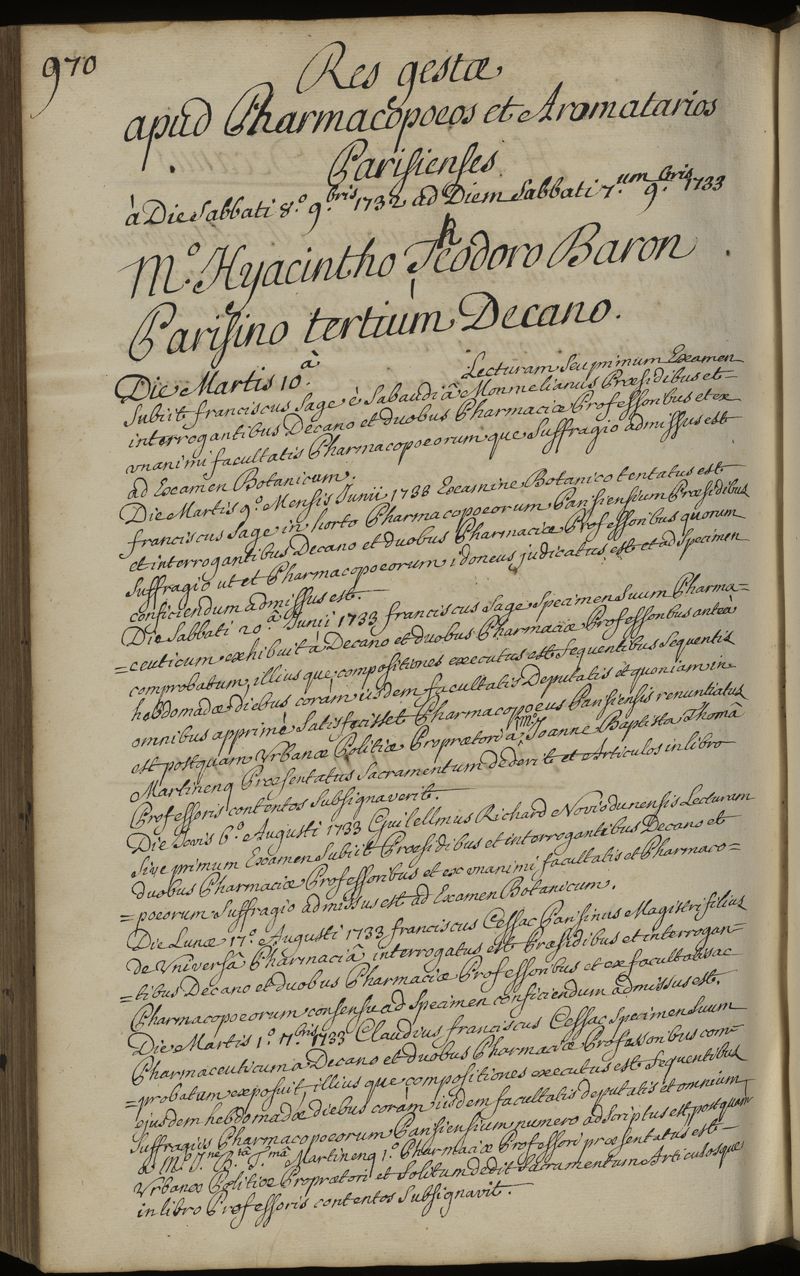 970
Res gestæ
apud Pharmacopoeos et Aromatarios
Parisienses
à Die Sabbati 8.º 9.bris 1732 ad Diem Sabbati 7.um 9.bris 1733
M.º Hyacintho Theodoro Baron
Parisino tertiùm Decano.
Die Martis 10.â Lecturam seu primum Examen
subiit franciscus Sage è Sabaudiâ Monmelianus Præsidibus et
interrogantibus Decano et duobus Pharmaciæ Professoribus et ex
vnanimi facultatis Pharmacopoeorum que suffragio admissus est
ad Examen Botanicum.
Die Martis 9.º Mensis Junii 1733 Examine Botanico tentatus est
franciscus Sage in horto Pharmacopoeorum Parisiensium Præsidibus
et interrogantibus Decano et duobus Pharmaciæ Professoribus quorum
suffragio ut et Pharmacopoeorum idoneus judicatus est et ad specimen
conficiendum admissus est.
Die Sabbati 20.â Junii 1733 franciscus Sage specimen suum Pharma=
=ceuticum exhibuit à Decano et duobus Pharmaciæ Professoribus anteà
comprobatum, illius que compositiones executus est sequentibus sequentis
hebdomadæ diebus coràm iisdem facultatis Deputatis et quoniam in
omnibus apprimè satisfecisset Pharmacopoeus Parisiensis renuntiatus
est postquam Vrbanæ Politiæ Proprætori à Joanne Baptista Thomâ
Martinenq Præsentatus Sacramentum dederit et Articulos in libro
Professoris contentos subsignaverit.
Die Jovis 6.º Augusti 1733 Guilellmus Richard Noviodunensis Lecturam
sive primum Examen subiit Præsidibus et interrogantibus Decano et
duobus Pharmaciæ Professoribus et ex vnanimi facultatis et Pharmaco=
=poeorum suffragio admissus est ad Examen Botanicum.
Die Lunæ 17.º Augusti 1733 franciscus Cessac Parisinus Magistri filius
de Vniversâ Pharmaciâ interrogatus est Præsidibus et interrogan=
=tibus Decano et duobus Pharmaciæ Professoribus et ex facultatis ac
Pharmacopoeorum consensu ad specimen conficiendum admissus est.
Die Martis 1.º 7.bris 1733 Claudius franciscus Cessac specimen suum
Pharmaceuticum a Decano et duobus Pharmaciæ Professoribus com=
=probatum exposuit, illius que compositiones executus est sequentibus
ejusdem hebdomadæ diebus coràm iisdem facultatis deputatis et omnium
suffragiis Pharmacopoeorum Parisiensium numero adscriptus est, postquàm
a M.º J.ne B.tâ T.mâ Martinenq 1.º Pharmaciæ Professori præsentatus est
Vrbanæ Politiæ Proprætori et solitum dedit Sacramentum Articulosque
in libro Professoris contentos subsignavit.